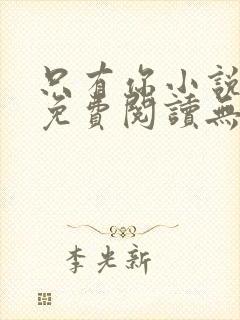 只有你小說
免費閱讀無
李光新